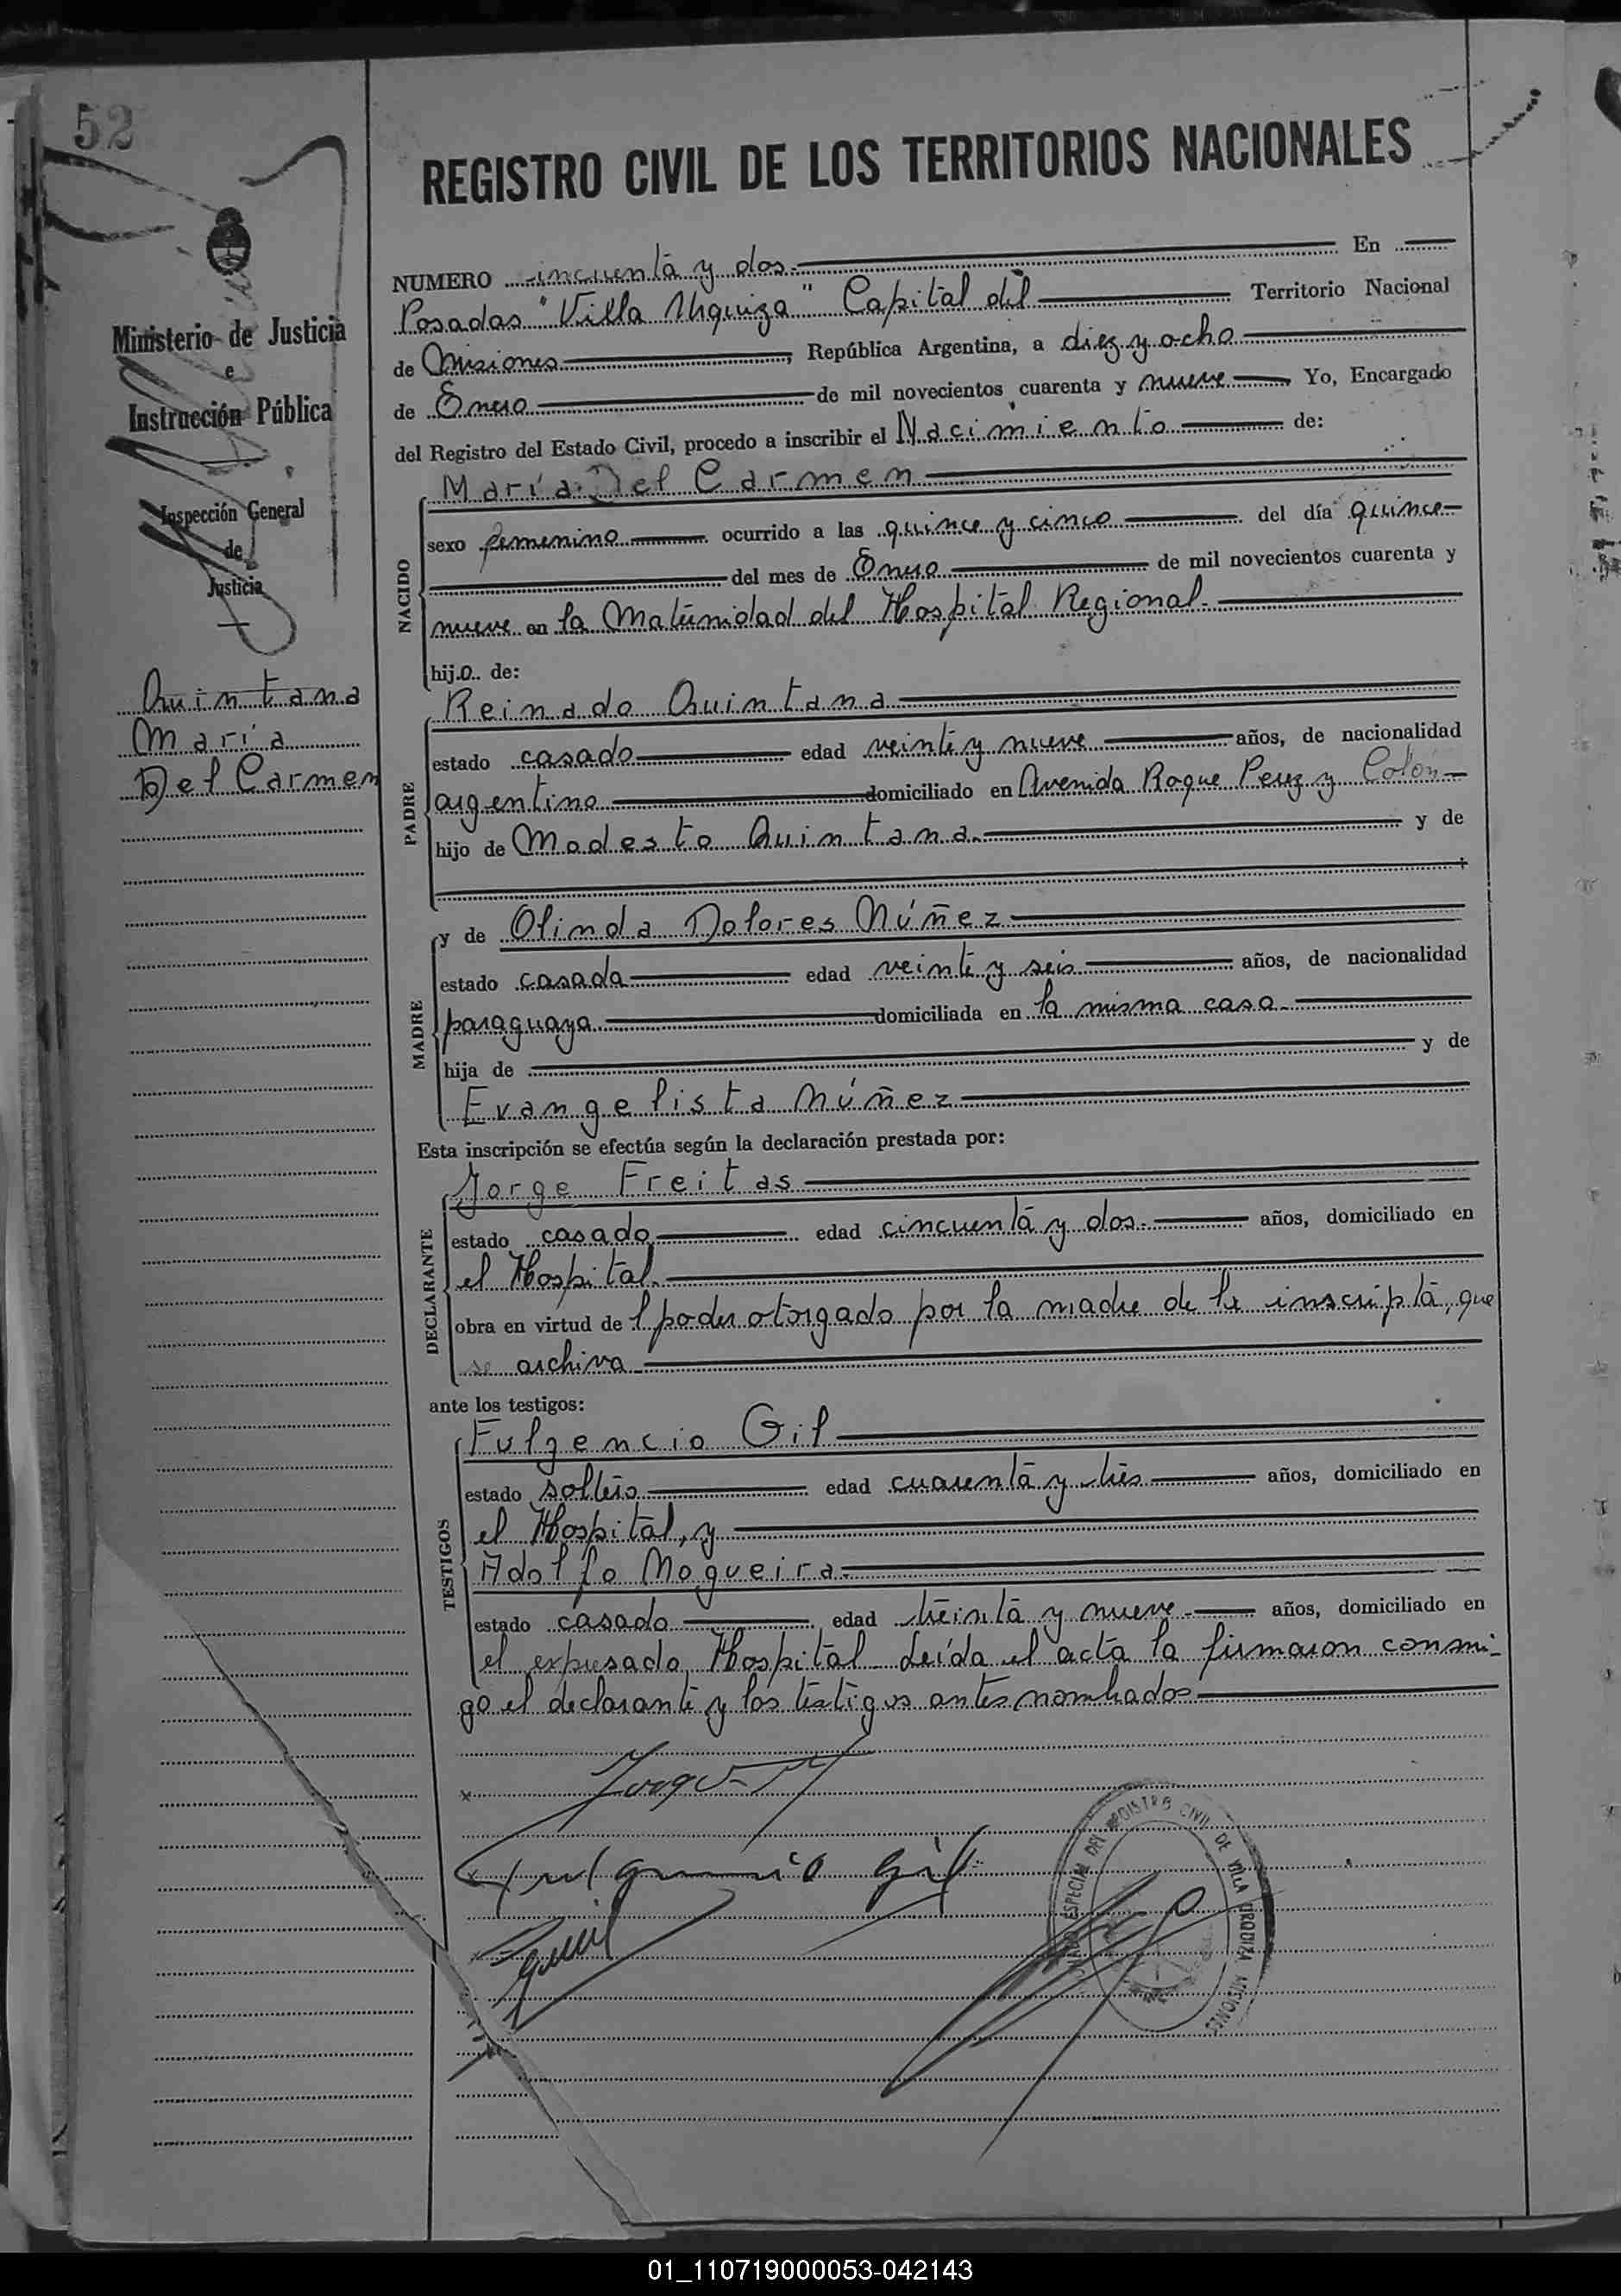 52
REGISTRO CIVIL DE LOS TERRITORIOS NACIONALES
Ministerio de Justicia
e
Instrucción Pública
Inspección General
de
Justicia
Quintana
María
Del Carmen
NUMERO cincuenta y dos. En
Posadas "Villa Urquiza" Capital del Territorio Nacional
de Misiones, República Argentina, a diez y ocho
de Enero de mil novecientos cuarenta y nueve Yo, Encargado
del Registro del Estado Civil, procedo a inscribir el Nacimiento de:
NACIDO
María Del Carmen
sexo femenino ocurrido a las quince y cinco del día quince
del mes de Enero de mil novecientos cuarenta y
nueve en la Maternidad del Hospital Regional.
hijo de:
PADRE
Reinado Quintana
estado casado edad veinte y nueve años, de nacionalidad
argentino domiciliado en Avenida Roque Perez y Colón
hijo de Modesto Quintana. y de
MADRE
y de Olinda Dolores Núñez
estado casada edad veinte y seis años, de nacionalidad
paraguaya domiciliada en la misma casa
hija de y de
Evangelista Núñez
Esta inscripción se efectúa según la declaración prestada por:
DECLARANTE
Jorge Freitas
estado casado edad cincuenta y dos. años, domiciliado en
el Hospital.
obra en virtud del poder otorgado por la madre de la inscripta, que
se archiva
ante los testigos:
TESTIGOS
Fulgencio Gil
estado soltero edad cuarenta y tres años, domiciliado en
el Hospital, y
Adolfo Mogueira
estado casado edad treinta y nueve años, domiciliado en
el expresado Hospital. Leída el acta la firmaron conmi-
go el declarante y los testigos antes nombrados
Fulgencio Gil
ESPECIAL DEL REGISTRO CIVIL DE VILLA URQUIZA MISIONES
01_110719000053-042143